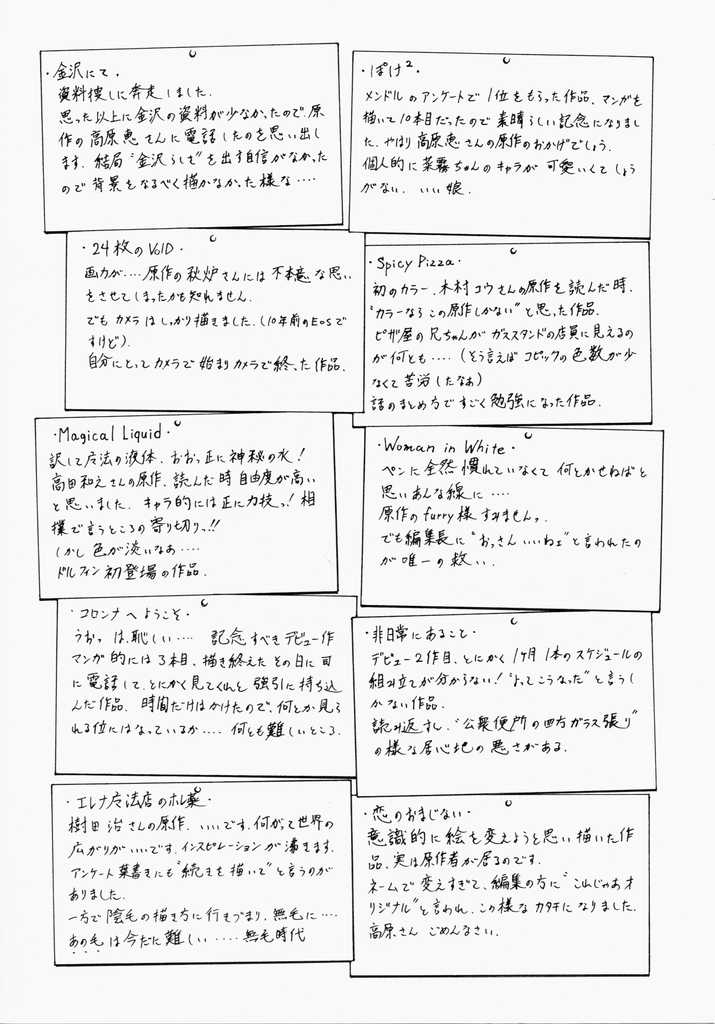 ・金沢にて・
資料捜しに奔走しました。
思った以上に金沢の資料が少なかったので、原
作の高原恵さんに電話したのを思い出し
ます。結局“金沢らしさ”を出す自信がなかった
ので背景をなるべく描かなかった様な‥‥
・ぽけ²・
メンドルのアンケートで1位をもらった作品、マンガを
描いて10本目だったので素晴らしい記念になりまし
た。やはり高原恵さんの原作のおかげでしょう。
個人的に菜霧ちゃんのキャラが可愛いくてしょう
がない。いい娘。
・24枚のVOID・
画力が‥‥原作の秋炉さんには不本意な思い
をさせてしまったかも知れません。
でもカメラはしっかり描きました。(10年前のEOSで
すけど)。
自分にとってカメラで始まりカメラで終った作品。
・Spicy Pizza・
初のカラー、木村コウさんの原作を読んだ時、
“カラーならこの原作しかない”と思った作品。
ピザ屋の兄ちゃんがガススタンドの店員に見えるの
が何とも‥‥(そう言えばコピックの色数が少
なくて苦労したなぁ)
話のまとめ方ですごく勉強になった作品。
・Magical Liquid・
訳して魔法の液体。おおっ正に神秘の水!
高田和えさんの原作、読んだ時自由度が高い
と思いました。キャラ的には正に力技っ!相
撲で言うところの寄り切りっ!!
しかし色が淡いなぁ‥‥
ドルフィン初登場の作品。
・Woman in White・
ペンに全然慣れていなくて何とかせねばと
思いあんな線に‥‥
原作のfurry様すみませんっ。
でも編集長に“おっさんいいねェ”と言われたの
が唯一の救い。
・コロンナへようこそ・
うおっは、恥しい‥‥ 記念すべきデビュー作
マンガ的には3本目、描き終えたその日に司
に電話して、とにかく見てくれと強引に持ち込
んだ作品。時間だけはかけたので、何とか見ら
れる位にはなっているか‥‥何とも難しいところ。
・非日常にあること・
デビュー2作目、とにかく1ヶ月1本のスケジュールの
組み立てが分からない!“よってこうなった”と言うし
かない作品。
読み返すし、“公衆便所の四方ガラス張り”
の様な居心地の悪さがある。
・エレナ魔法店のホレ薬・
樹田治さんの原作、いいです。何がって世界の
広がりがいいです。インスピレーションが湧きます。
アンケート葉書きにも“続きを描いて”と言うのが
ありました。
一方で陰毛の描き方に行きづまり、無毛に‥‥
あの毛は今だに難しい‥‥・無毛時代
・恋のおまじない・
意識的に絵を変えようと思い描いた作
品、実は原作者が居るのです。
ネームで変えすぎて、編集の方に“これじゃあオ
リジナル”と言われ、この様なカタチになりました。
高原さんごめんなさい。